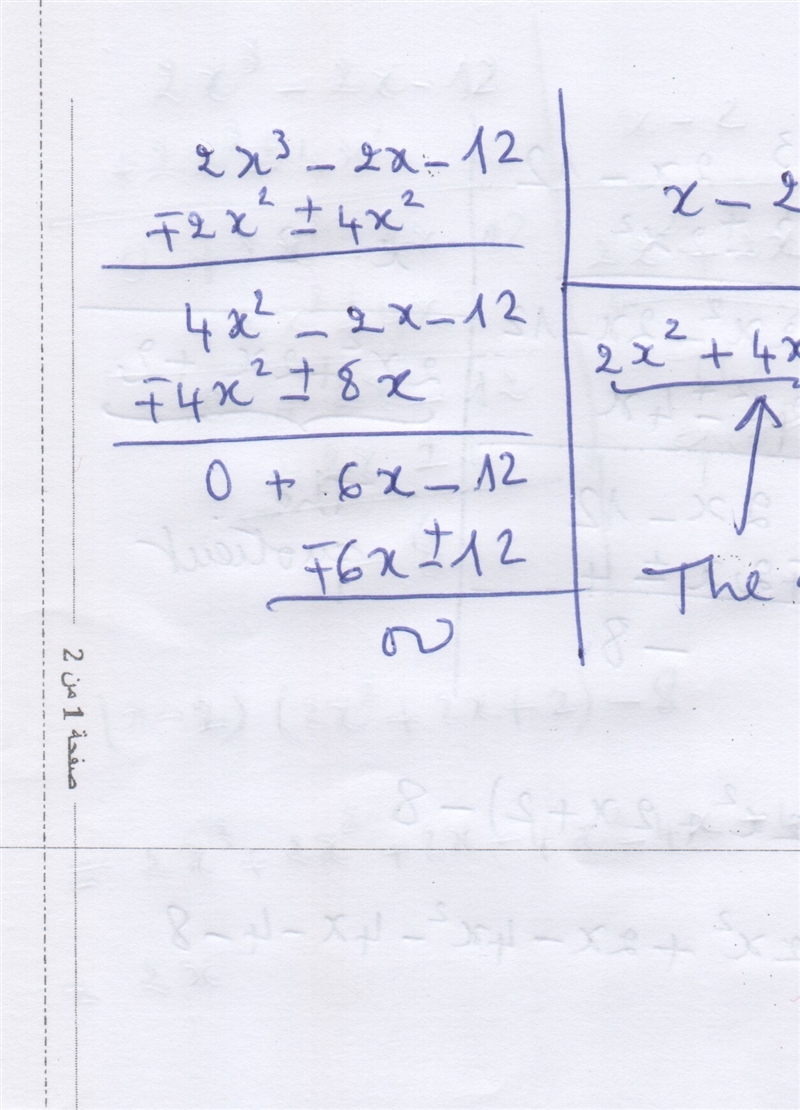 2x³ - 2x - 12
∓2x² ± 4x²
4x² - 2x - 12
∓4x² ± 8x
0 + 6x - 12
∓6x ± 12
x - 2
2x² + 4x
The
صفحة 1 من 2